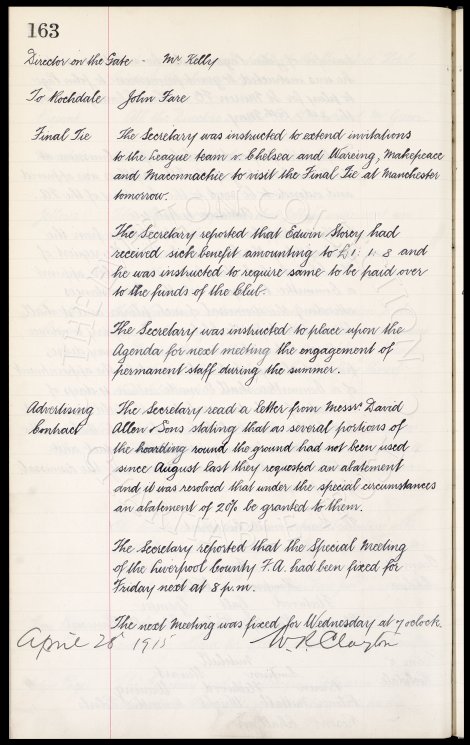 163
Director on the Gate - Mr Kelly
To Rochdale John Fare
Final Tie The Secretary was instructed to extend invitations
to the League team v. Chelsea and Wareing, Makepeace
and Maconnachie to visit the Final Tie at Manchester
tomorrow.
The Secretary reported that Edwin Storey had
received sick benefit amounting to £1: 1: 8 and
he was instructed to require same to be paid over
to the funds of the Club.
The Secretary was instructed to place upon the
Agenda for next meeting the engagement of
permanent staff during the summer.
Advertising The Secretary read a letter from Messrs David
Contract Allen & Sons stating that as several portions of
the hoarding round the ground had not been used
since August last they requested an abatement
and it was resolved that under the special circumstances
an abatement of 20% be granted to them.
The Secretary reported that the Special Meeting
of the Liverpool County F.A. had been fixed for
Friday next at 8 p.m.
The next Meeting was fixed for Wednesday at 7 oclock.
April 28 1915 W. R. Clayton